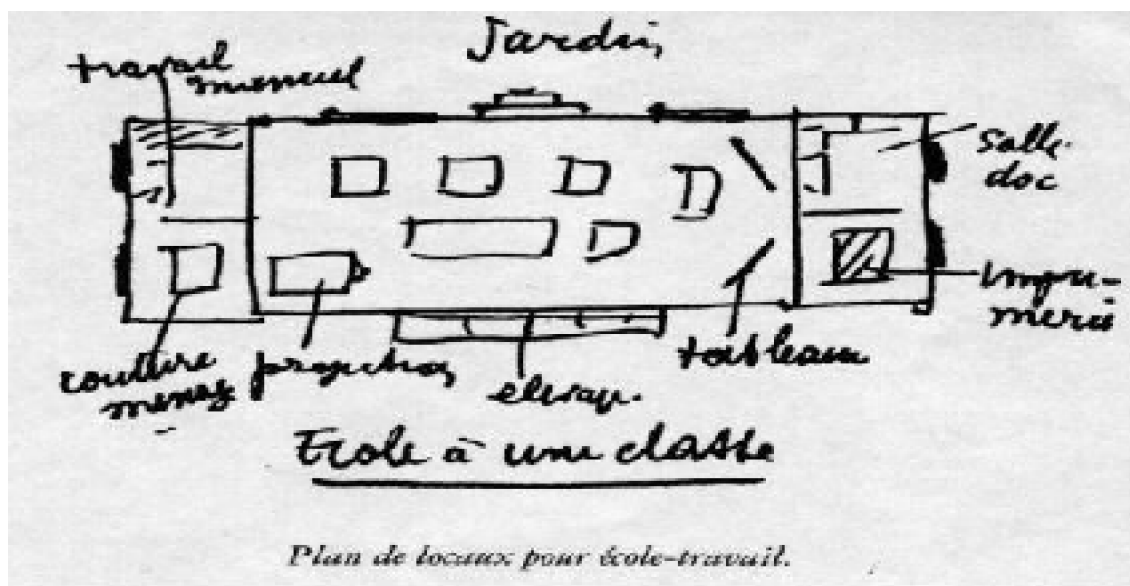 Jardin
travail
manuel
Salle
doc
Impri-
merie
couture
menag
projection
elevage
tableau
Ecole à une classe
Plan de locaux pour école-travail.